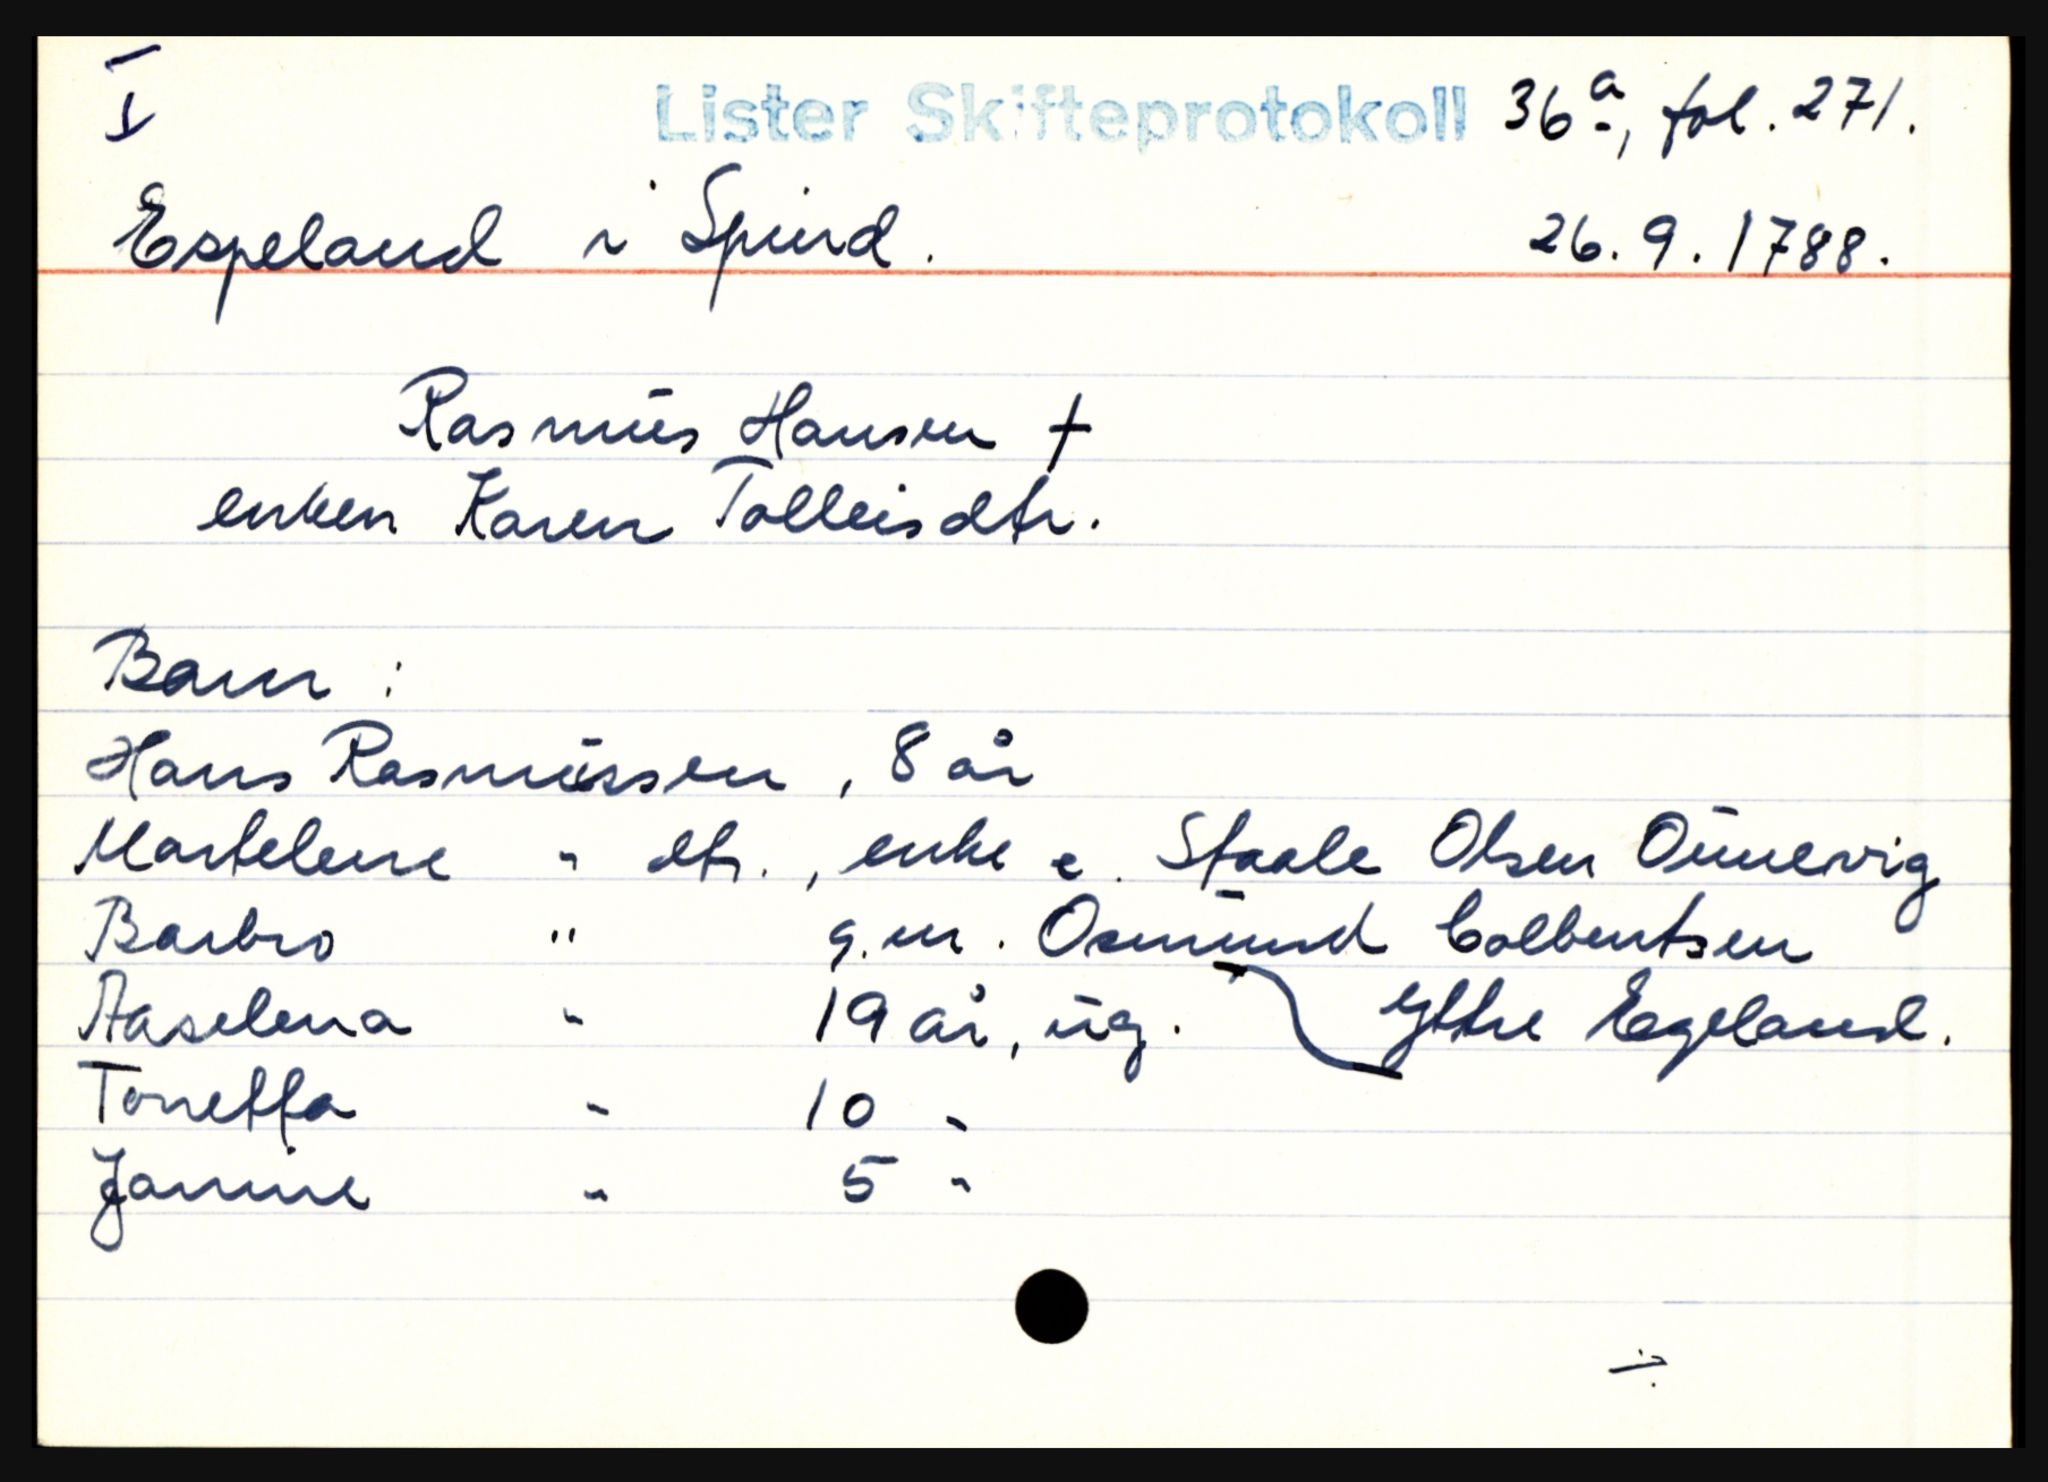 I
Lister Skifteprotokoll 36a, fol. 271.
Espeland i Spind. 26.9.1788.
Rasmus Hansen †
enken Karen Tolleisdtr.
Barn :
Hans Rasmussen , 8 år
Martelene " dtr. , enke e. Staale Olsen Ounevig
Barbro " g.m. Osmund Colbentsen
Aaselena " 19 år, ug. Yttre Egeland.
Tonetta " 10 "
Janine " 5 "